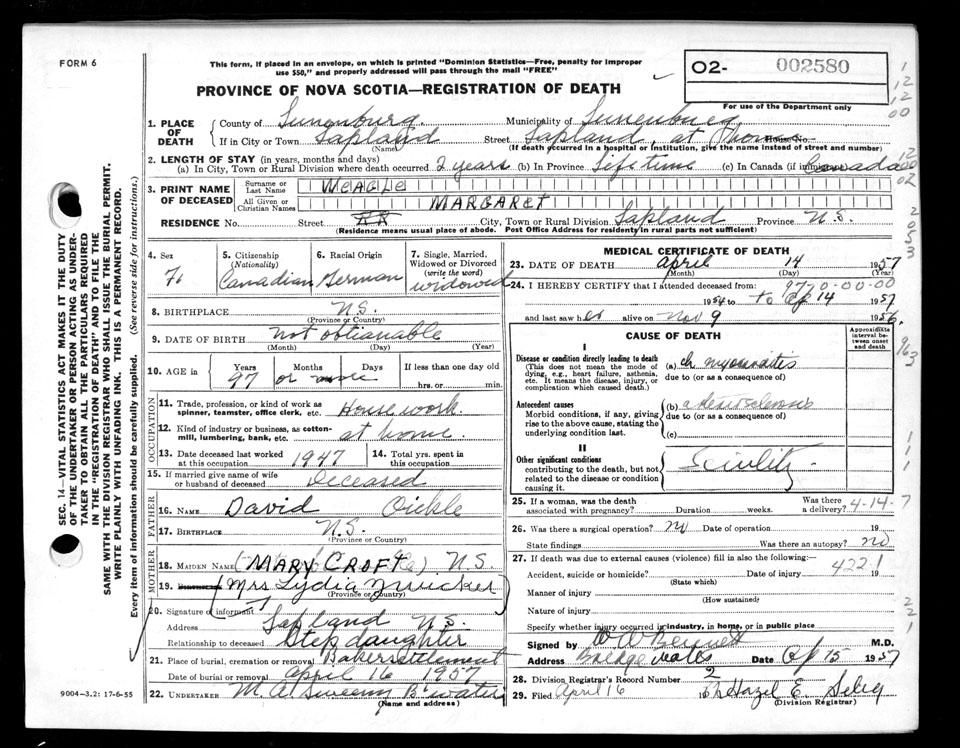 FORM 6
This form, if placed in an envelope, on which is printed "Dominion Statistics—Free, penalty for improper
use $50," and properly addressed will pass through the mail "FREE"
O2- 002580
For use of the Department only
PROVINCE OF NOVA SCOTIA—REGISTRATION OF DEATH
1. PLACE OF DEATH County of Lunenburg Municipality of Lunenburg
If in City or Town Lapland Street Lapland at
(Name) (If death occurred in a hospital or institution, give the name instead of street and number)
2. LENGTH OF STAY (in years, months and days)
(a) In City, Town or Rural Division where death occurred 2 years (b) In Province Life time (c) In Canada (if immigrant) Canada
3. PRINT NAME OF DECEASED Surname or Last Name WEAGLE
All Given or Christian Names MARGARET
RESIDENCE No. Street RR City, Town or Rural Division Lapland Province N.S.
(Residence means usual place of abode. Post Office Address for residents in rural parts not sufficient)
4. Sex F. 5. Citizenship (Nationality) Canadian 6. Racial Origin German 7. Single, Married, Widowed or Divorced (write the word) widowed
8. BIRTHPLACE N.S.
(Province or Country)
9. DATE OF BIRTH not obtianable
(Month) (Day) (Year)
10. AGE in Years 97 Months or more Days If less than one day old hrs. or min.
OCCUPATION
11. Trade, profession, or kind of work as spinner, teamster, office clerk, etc. House work.
12. Kind of industry or business, as cotton-mill, lumbering, bank, etc. at home.
13. Date deceased last worked at this occupation 1947 14. Total yrs. spent in this occupation
15. If married give name of wife or husband of deceased Deceased
FATHER
16. NAME David Oickle
17. BIRTHPLACE N.S.
(Province or Country)
MOTHER
18. MAIDEN NAME MARY CROFT N.S.
19. Mrs Lydia Zwicker
(Province or Country)
20. Signature of informant
Address Lapland N.S.
Relationship to deceased Step daughter
21. Place of burial, cremation or removal Bakersettlement
Date of burial or removal april 16 1957
22. UNDERTAKER M. A. Sweeny B. water
(Name and address)
9004—3.2: 17-6-55
MEDICAL CERTIFICATE OF DEATH
23. DATE OF DEATH April 14 1957
(Month) (Day) (Year)
9770-00-00
24. I HEREBY CERTIFY that I attended deceased from:
1954 to Ap 14 1957
and last saw her alive on Nov 9 1956.
CAUSE OF DEATH
Approximate interval between onset and death
I
Disease or condition directly leading to death
(This does not mean the mode of dying, e.g., heart failure, asthenia, etc. It means the disease, injury, or complication which caused death.)
(a) Ch myocarditis
due to (or as a consequence of)
Antecedent causes
Morbid conditions, if any, giving rise to the above cause, stating the underlying condition last.
(b) arteriosclerosis
due to (or as a consequence of)
(c)
II
Other significant conditions
contributing to the death, but not related to the disease or condition causing it.
Senility
25. If a woman, was the death associated with pregnancy? Duration weeks. Was there a delivery? 4-14-7
26. Was there a surgical operation? no Date of operation 19
State findings Was there an autopsy? no
27. If death was due to external causes (violence) fill in also the following: 4221
Accident, suicide or homicide? Date of injury 19
(State which)
Manner of injury
(How sustained)
Nature of injury
Specify whether injury occurred in industry, in home, or in public place
Signed by M.D.
Address Date Ap 15 1957
28. Division Registrar's Record Number 2
29. Filed April 16 Hazel E. Selig
(Division Registrar)
SEC. 14—VITAL STATISTICS ACT MAKES IT THE DUTY
OF THE UNDERTAKER OR PERSON ACTING AS UNDER-
TAKER TO OBTAIN ALL THE PARTICULARS REQUIRED
IN THE "REGISTRATION OF DEATH" AND TO FILE THE
SAME WITH THE DIVISION REGISTRAR WHO SHALL ISSUE THE BURIAL PERMIT.
WRITE PLAINLY WITH UNFADING INK. THIS IS A PERMANENT RECORD.
Every item of information should be carefully supplied. (See reverse side for instructions.)